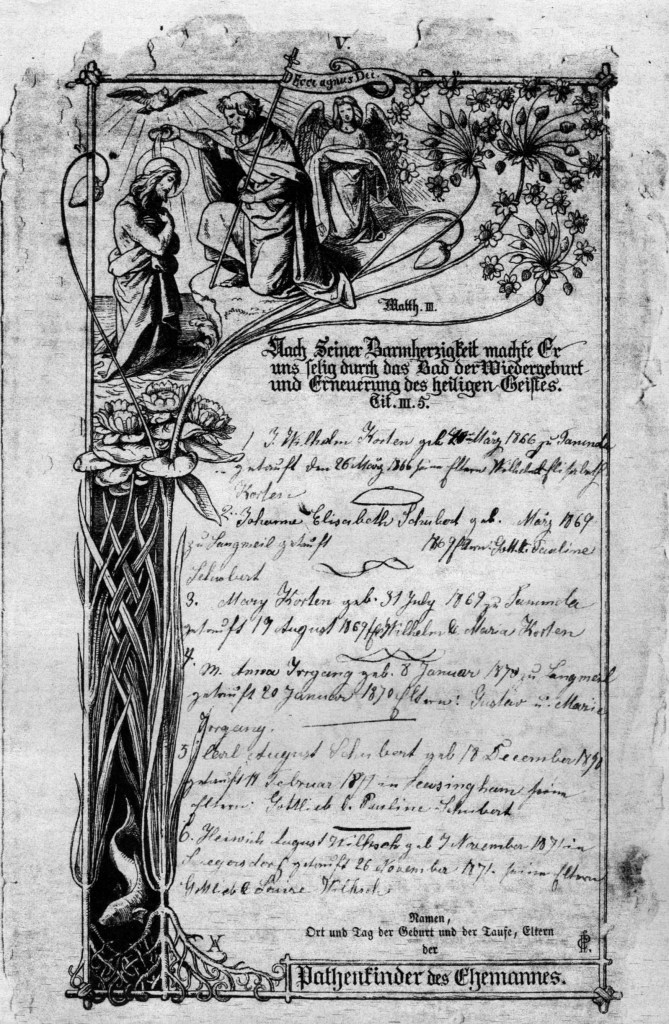 V.
Ecce agnus Dei.
Matth. III.
Nach Seiner Barmherzigkeit machte Er
uns selig durch das Bad der Wiedergeburt
und Erneuerung des heiligen Geistes.
Tit. III. 5.
1 J. Wilhelm Korten geb. März 1866 zu Tanunda
getauft den 26 März 1866 seine Eltern Wilhelm Elisabeth
Korten
2. Johanne Elisabeth Schubert geb. März 1869
zu Langmeil getauft 1869 Eltern: Gottl. & Pauline
Schubert
3. Mary Korten geb. 31 July 1869 zu Tanunda
getauft 19 August 1869 Wilhelm & Maria Korten
4.
M. Anna Irrgang geb. 8 Januar 1870 zu Langmeil
getauft 20 Januar 1870 Eltern: Gustav u. Marie
Irrgang.
5. Carl August Schubert geb 18 December
getauft 11 Februar 1871 in seine
Eltern: Gottlieb & Pauline Schubert
6. Heinrich August geb 7 November 1871 in
getauft 26 November 1871 seine Eltern
Gottlieb & Louise
Namen,
Ort und Tag der Geburt und der Taufe, Eltern
der
Pathenkinder des Ehemannes.